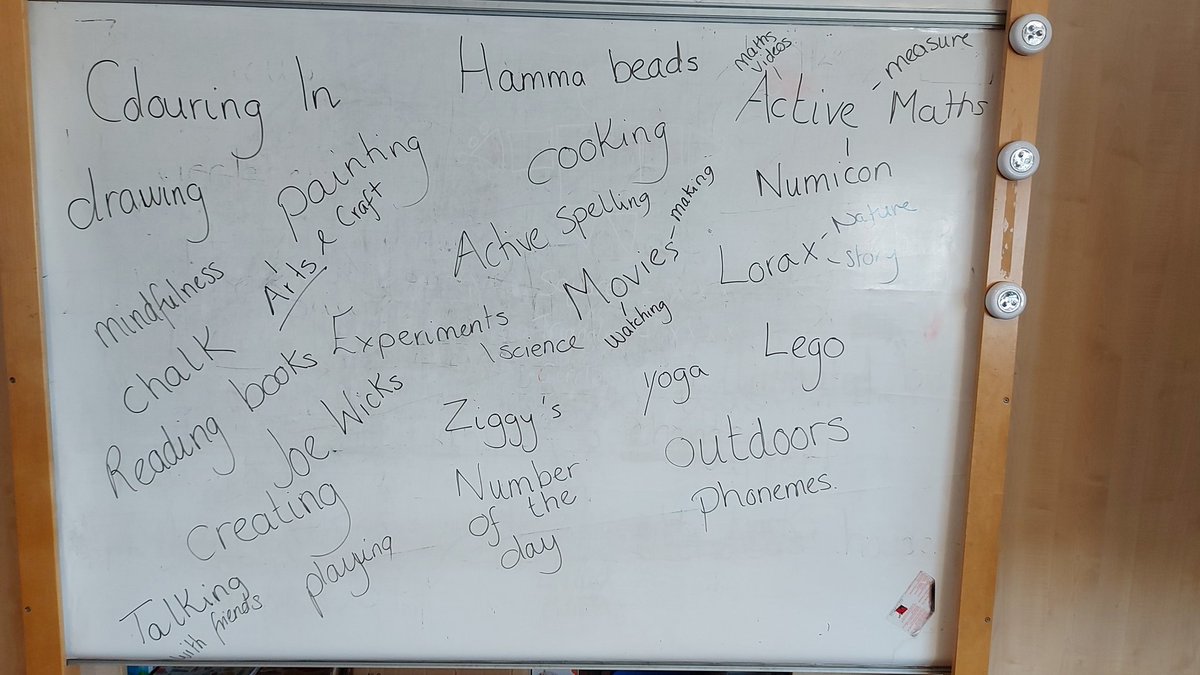 Colouring In
drawing
painting
Arts & Craft
mindfulness
chalk
Reading books
Joe Wicks
creating
Talking
with friends
playing
Hamma beads
cooking
Active Spelling
Movies - making
watching
Experiments
science
Ziggy's
Number
of the
day
maths
videos
Active Maths
- measure
Numicon
Lorax - Nature
- story
Lego
yoga
outdoors
Phonemes.